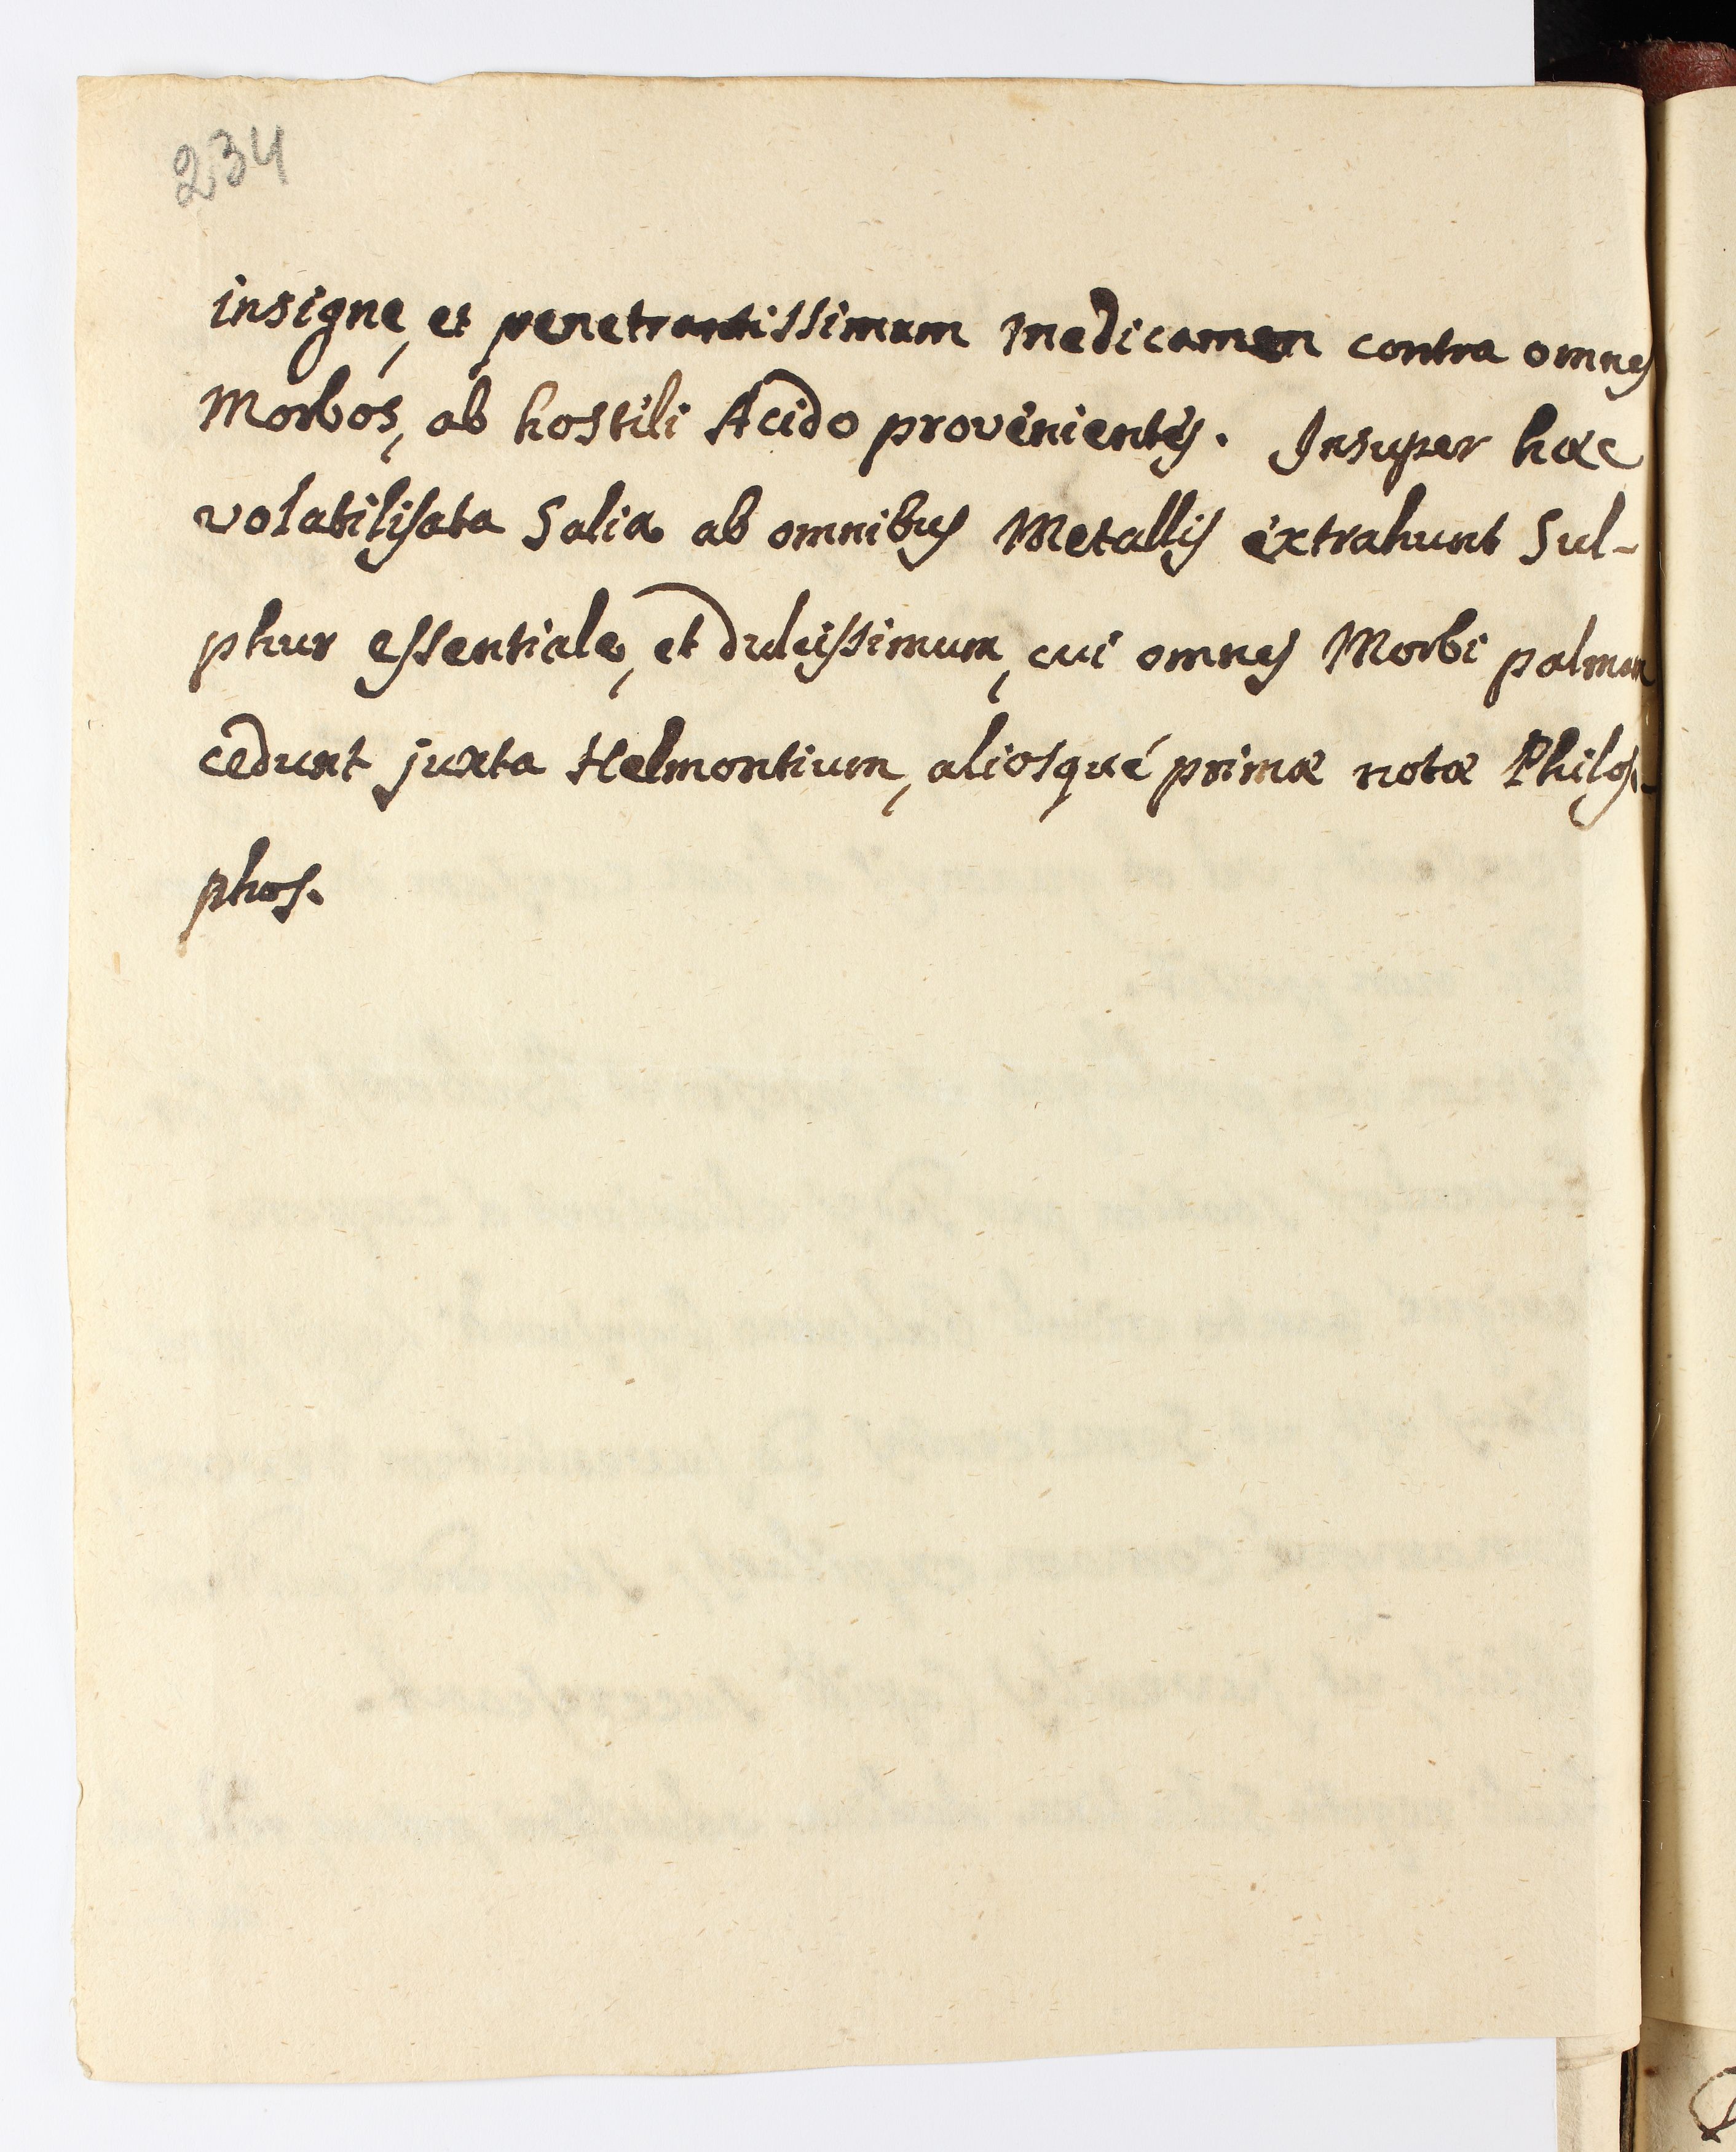 234
insigne, et penetrantissimum Medicamen contra omnes
Morbos, ab hostili Acido provenientes. Insuper hæc
volatilisata Salia ab omnibus Metallis extrahunt Sul-
phur essentiale, et dulcissimum, cui omnes Morbi palmam
cedunt juxta Helmontium, aliosqué primæ notæ Philoso-
phos.